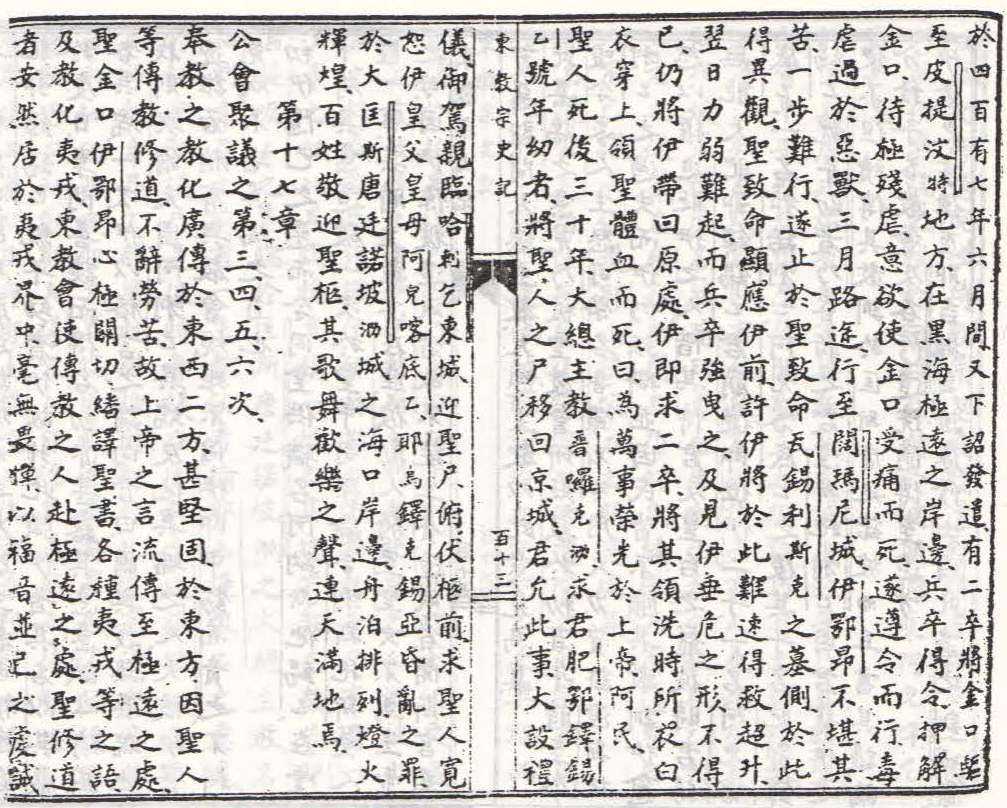 於四百有七年六月間、又下詔發遣、有二卒將金口驅
至皮提汶特地方、在黑海極遠之岸邊、兵卒得令、押解
金口、待極殘虐、意欲使金口受痛而死、遂遵令而行、毒
虐過於惡獸、三月路途、行至闊瑪尼城、伊鄂昂不堪其
苦、一步難行、遂止於聖致命瓦錫利斯克之墓側、於此
得異觀、聖致命顯應伊前、許伊將於此難速得救超升、
翌日力弱難起、而兵卒強曳之、及見伊垂危之形、不得
已、仍將伊帶回原處、伊即求二卒、將其領洗時所衣白
衣穿上、領聖體血而死、曰、為萬事榮光於上帝、阿民、
聖人死後三十年、大總主教普囉克泐、求君肥鄂鐸錫
乙號年幼者、將聖人之尸移回京城、君允此事、大設禮
東教宗史記
百十三
儀、御駕親臨哈剌乞東城、迎聖尸、俯伏柩前、求聖人寬
恕伊皇父皇母阿兒喀底乙、耶烏鐸克錫亞昏亂之罪、
於大匡斯唐廷諾坡泐城之海口岸邊、舟泊排列、燈火
輝煌、百姓敬迎聖柩、其歌舞歡樂之聲、連天滿地焉、
第十七章
公會聚議之第三、四、五、六次、
奉教之教化廣傳於東西二方、甚堅固、於東方因聖人
等傳教修道、不辭勞苦、故上帝之言流傳至極遠之處、
聖金口伊鄂昂心極關切、繙譯聖書、各種夷戎等之語、
及教化夷戎、東教會使傳教之人赴極遠之處、聖修道
者安然居於夷戎界中、毫無畏憚、以福音並己之虔誠